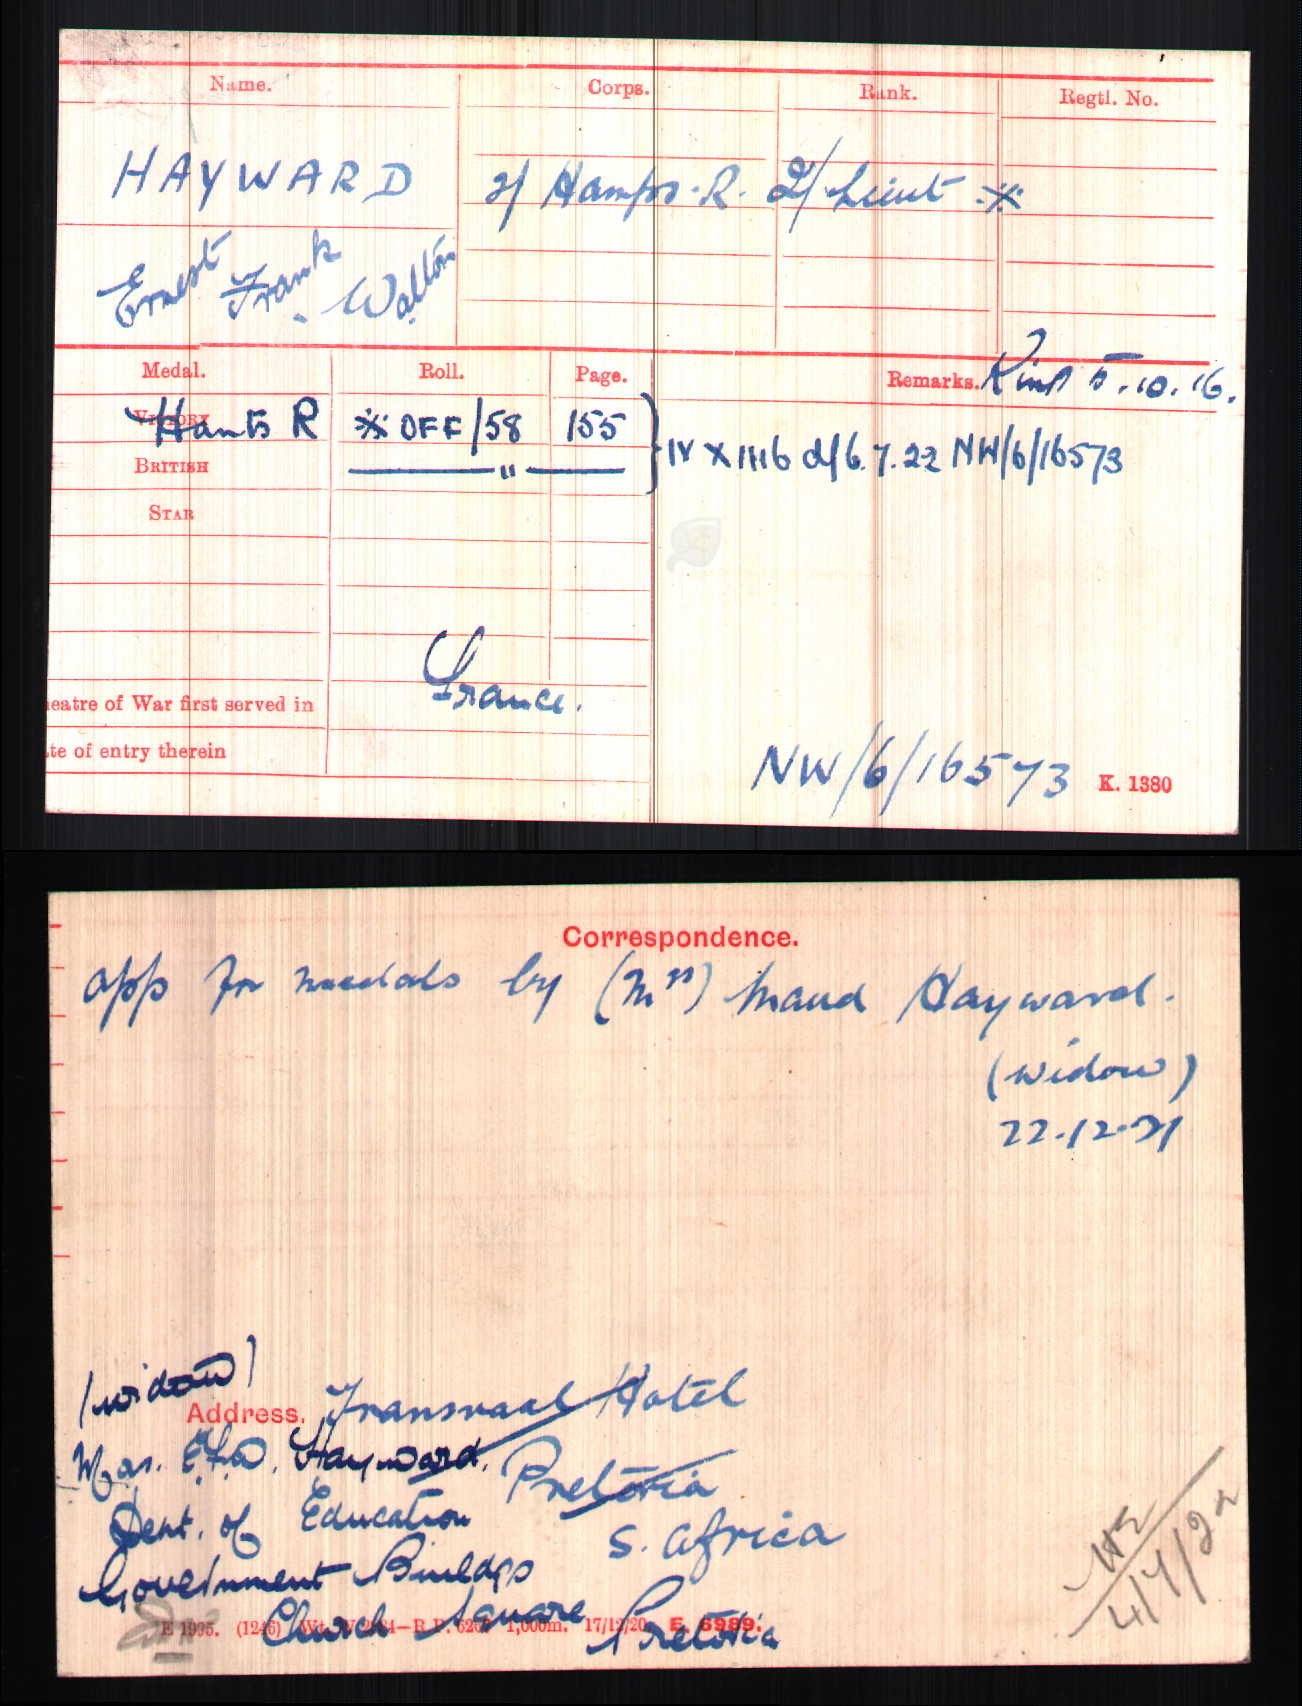 Name. Corps. Rank. Regtl. No.
HAYWARD 2/ Hamps. R. 2/Lieut ※
Ernest Frank Walton
Medal. Roll. Page. Remarks. KinA 5.10.16.
VICTORY Hants R ※ OFF/58 155
BRITISH " IV X 1116 d/6.7.22 NW/6/16573
STAR
France.
eatre of War first served in
te of entry therein
NW/6/16573 K. 1380
Correspondence.
app for medals by (Mrs) Maud Hayward.
(widow)
22.12.21
(widow)
Address. Transvaal Hotel
Mrs. E.F.W. Hayward. Pretoria
Dept. of Education S. Africa
Government Buildgs
Church Square Pretoria
E 1995. (1246) Wt. 1,000m. 17/12/20 E. 6989.
4/7/22